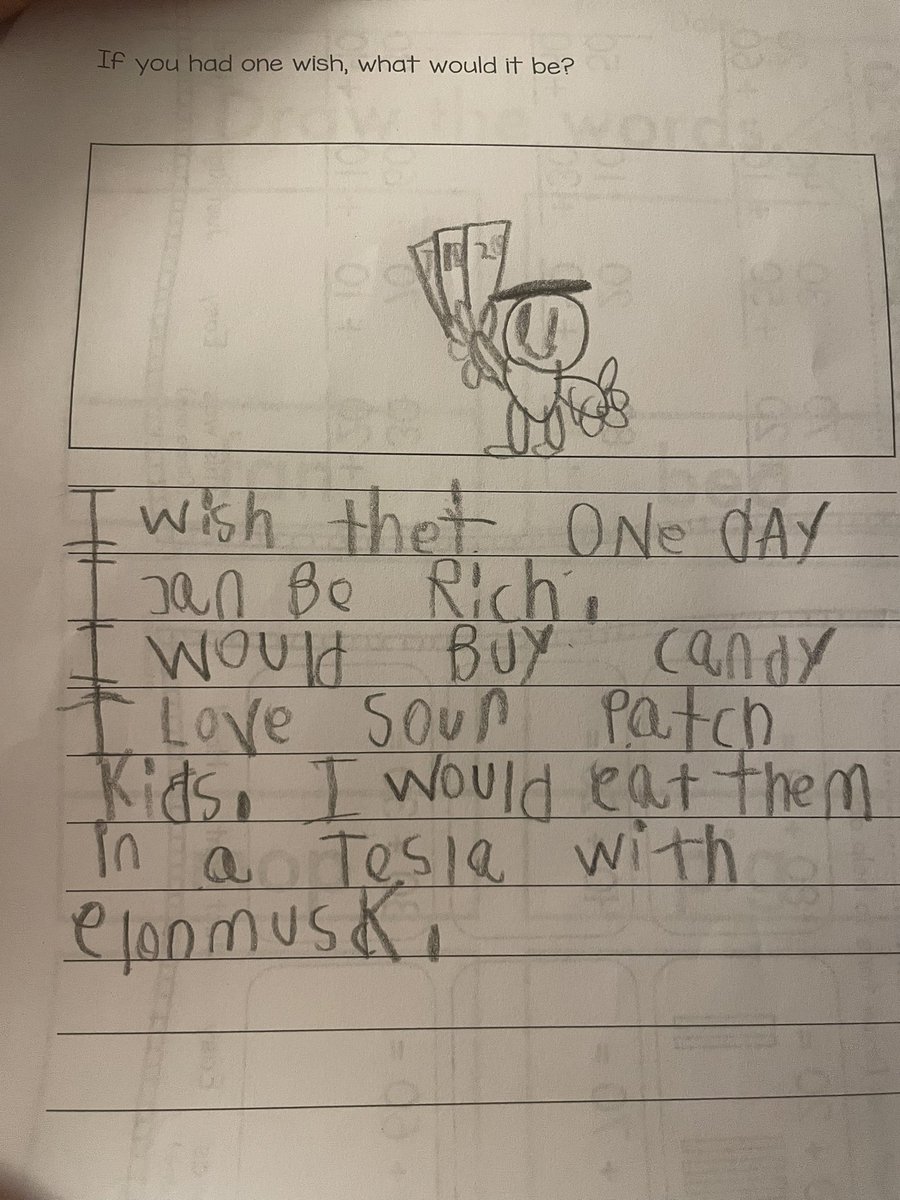 If you had one wish, what would it be?
20
I wish thet ONe dAY
I can Be Rich.
I would BUY candy
I Love Sour Patch
Kids. I would eat them
in a Tesla with
elonmusk.